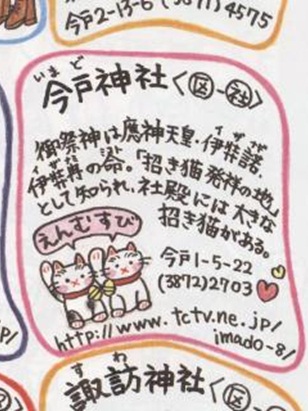 今戸2-13-6 (3871)4575
いまど
今戸神社〈区-社〉
御祭神は應神天皇・伊弉諾、
イザナギ
伊弉冉の命。「招き猫発祥の地」
イザナミ ミコト
として知られ、社殿には大きな
招き猫がある。
えんむすび
今戸1-5-22
(3872)2703
http://www.tctv.ne.jp/
imado-8/
すわ
諏訪神社〈区-